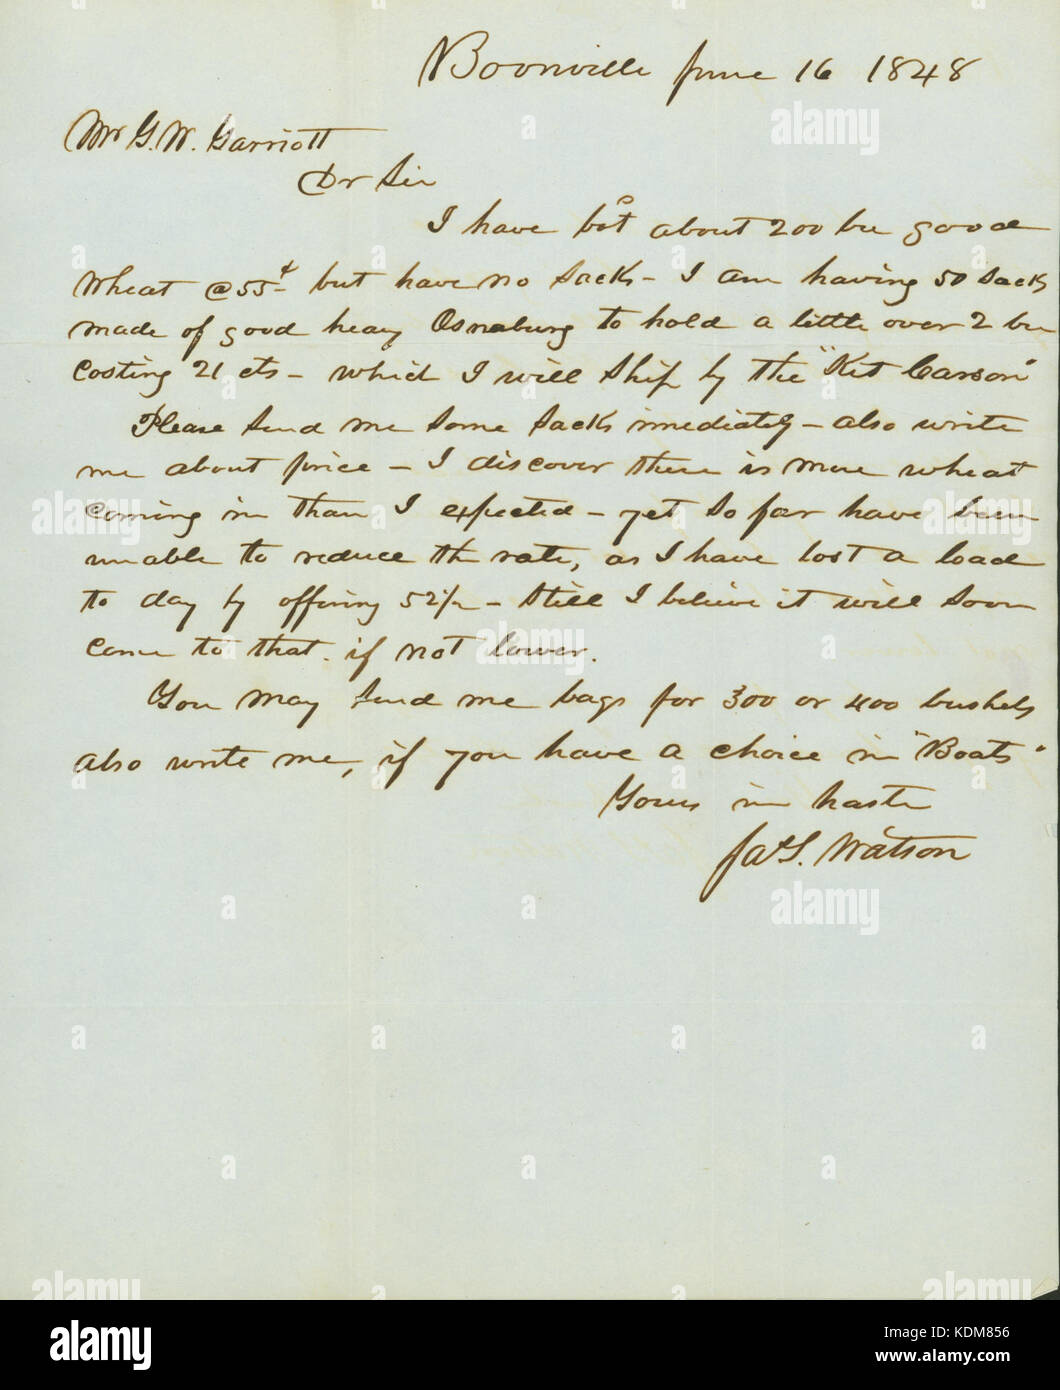 Boonville June 16 1848
Mr G. W. Garriott
Dr Sir
I have bot about 200 bu good
Wheat @ 55¢ but have no Sacks – I am having 50 Sacks
made of good heavy Osnaburg to hold a little over 2 bu
costing 21 cts – which I will Ship by the "Kit Carson"
Please Send me Some Sacks immediately – also write
me about price – I discover there is more wheat
coming in than I expected – yet So far have been
unable to reduce the rate, as I have lost a load
to day by offering 52½ – Still I believe it will Soon
come to that. if not lower.
You may Send me bags for 300 or 400 bushels
also write me, if you have a choice in "Boats"
Yours in haste
Jas S. Watson
alamy
a
alamy stock photo
Image ID: KDM856
www.alamy.com